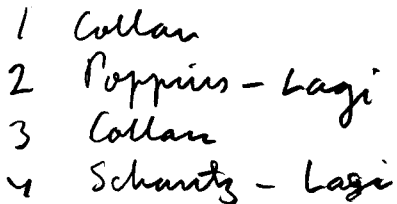 1 Collan
2 Poppius - Lagi
3 Collan
4 Schantz - Lagi